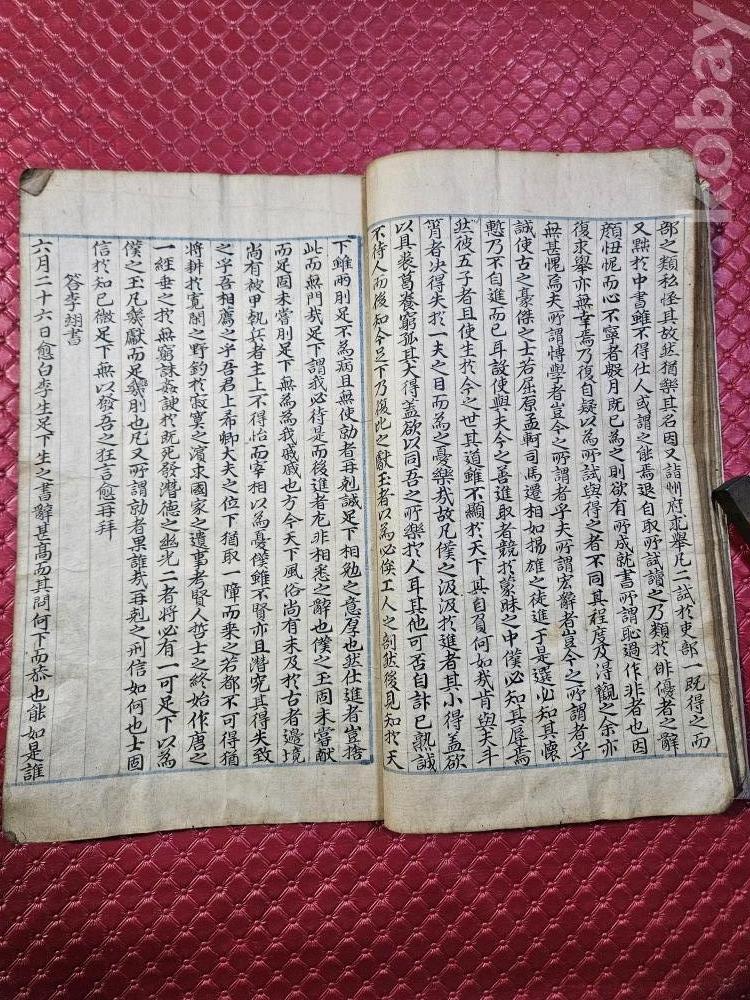 部之類私怪其故然猶樂其名因又詣州府求舉凡二試於吏部一既得之而
又黜於中書雖不得仕人或謂之能焉退自取所試讀之乃類於俳優者之辭
顏忸怩而心不寧者數月既已為之則欲有所成就書所謂恥過作非者也因
復求舉亦無幸焉乃復自疑以為所試與得之者不同其程度及淂觀之余亦
無甚愧焉夫所謂博學者豈今之所謂者乎夫所謂宏辭者豈今之所謂者乎
誠使古之豪傑之士若屈原孟軻司馬遷相如揚雄之徒進于是選必知其懷
慙乃不自進而已耳設使與夫今之善進取者競於蒙昧之中僕必知其辱焉
然彼五子者且使生於今之世其道雖不顯於天下其自負何如哉肯與夫斗
筲者决得失於一夫之目而為之憂樂哉故凡僕之汲汲於進者其小得盖欲
以具裘葛養窮孤其大得盖欲以同吾之所樂於人耳其他可否自計已熟誠
不待人而後知今足下乃復比之獻玉者以為必俟工人之剖然後見知於天
下雖兩刖足不為病且無使勍者再剋誠足下相勉之意厚也然仕進者豈捨
此而無門哉足下謂我必待是而後進者尤非相悉之辭也僕之玉固未嘗獻
而足固未嘗刖足下無為為我戚戚也方今天下風俗尚有未及於古者邊境
尚有被甲執兵者主上不得怡而宰相以為憂僕雖不賢亦且潛究其得失致
之乎吾相薦之乎吾君上希卿大夫之位下猶取一障而乘之若都不可得猶
將耕於寬閑之野釣於寂寞之濱求國家之遺事考賢人哲士之終始作唐之
一經垂之於無窮誅姦諛於既死發潛德之幽光二者將必有一可足下以為
僕之玉凡幾獻而足幾刖也凡又所謂勍者果誰哉再剋之刑信如何也士固
信於知己微足下無以發吾之狂言愈再拜
答李翊書
六月二十六日愈白李生足下生之書辭甚高而其問何下而恭也能如是誰
kobay